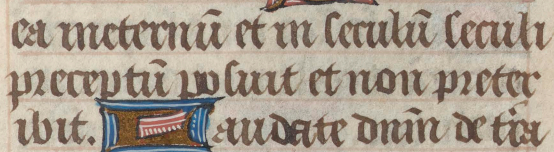 ea in eternū et in seculū seculi
preceptū posuit et non preter
ibit. Laudate dnm̄ de tr̄a